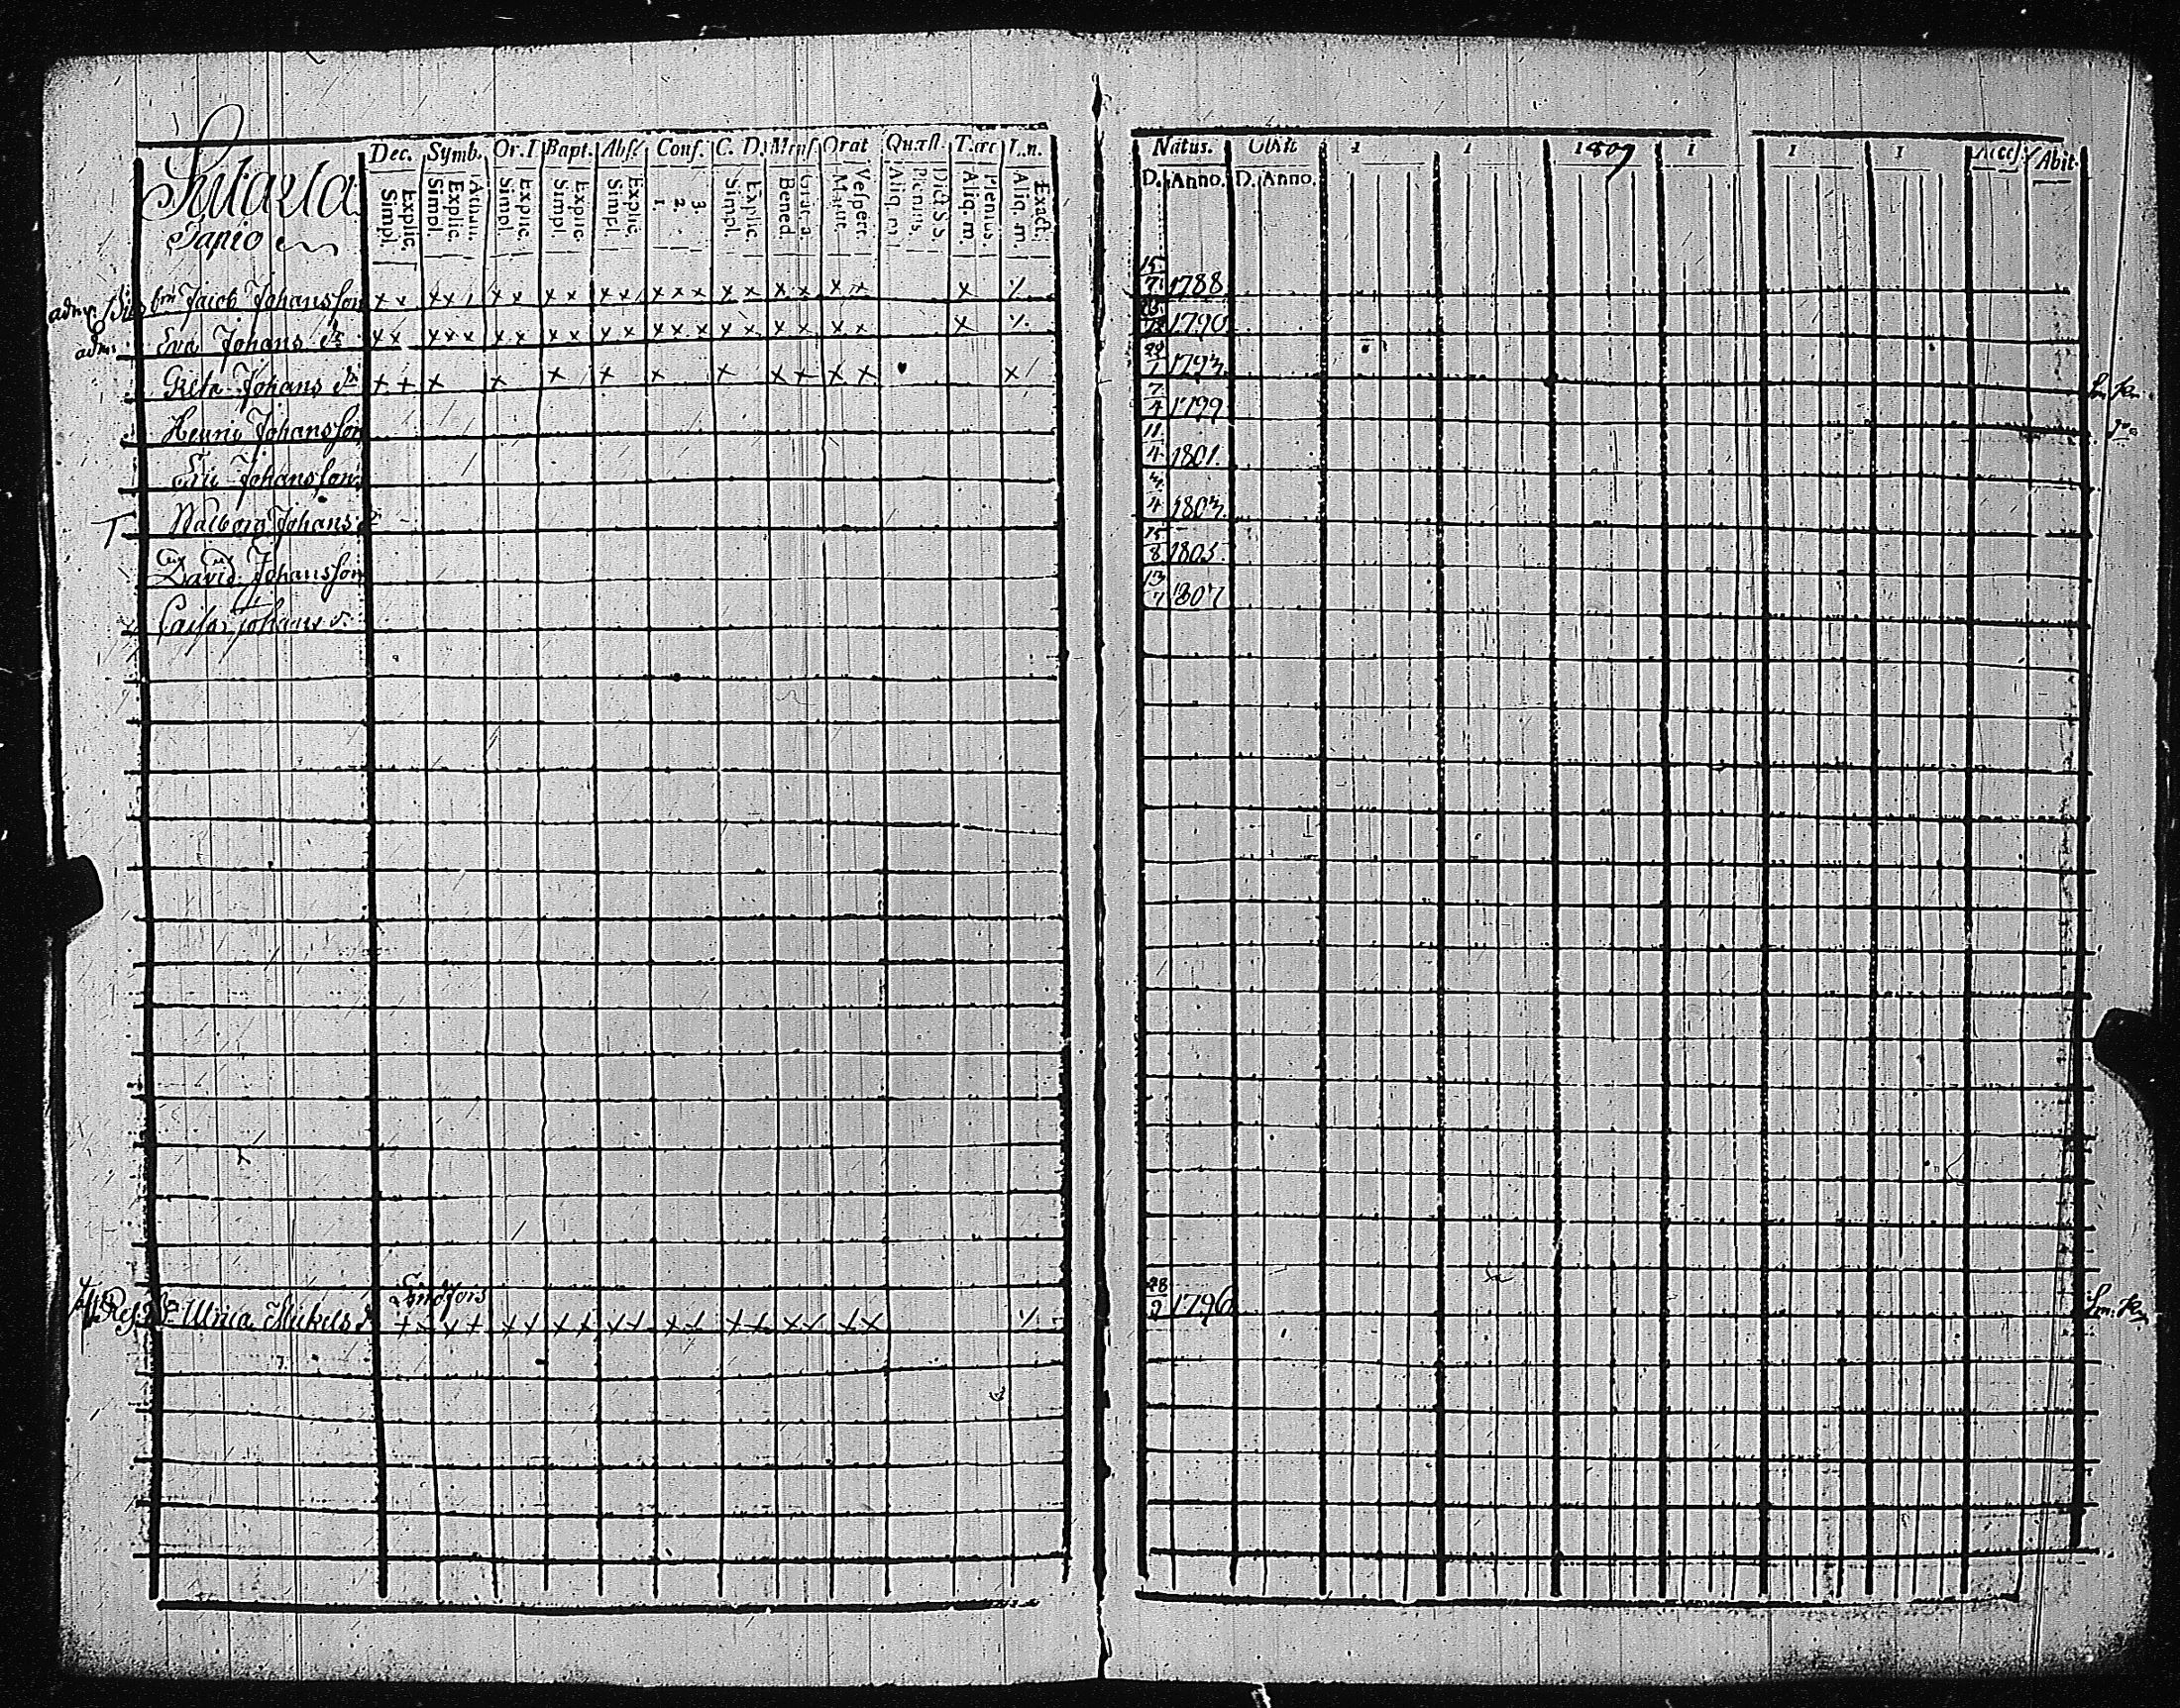 Dec. Symb. Or. D Bapt. Abs. Conf. C. D. Mens. Orat Quæst. T. œc L. n.
Simpl. Explic. Simpl. Explic. Athan. Simpl. Explic. Simpl. Explic. Simpl. Explic. 1. 2. 3. Simpl. Explic. Bened. Grat. a. Matut. Vespert. Aliq. m. Plenius. Dict. S. S. Aliq. m. Plenius. Aliq. m. Exact.
Tapio
Jacob Johansson x x x x x x x x x x x x x x x x x x x x x
Eva Johans dr x x x x x x x x x x x x x x x x x x x x x
adm.
Greta Johans dr x x x x x x x x x x x x x
Henric Johansson
Eric Johansson
Walborg Johans dr
David Johansson
Caisa Johans d
Lindfors
Ulrica Mickels d x x x x x x x x x x x x x x x x x x
Natus. Obiit 1 1 1809 1 1 1 Acces. Abit
D. Anno. D. Anno.
15/7 1788
1790
1793
7/4 1799
11/4 1801
4 1803
15/8 1805
13/7 1807
28/9 1796